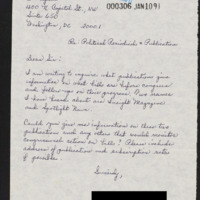 400 N. Capitol St., NW
Suite 650
Washington, DC 20001
000306 JAN1091
Re: Political Periodicals & Publications
Dear Sir:
I am writing to inquire what publications give
information on what bills are before congress
and follow-up on their progress. Two sources
I have heard about are Insight Magazine
and Spotlight News.
Could you give me information on these two
publications and any others that would monitor
congressional action on bills? Please include
address of publication and subscription rates
if possible.
Sincerely,